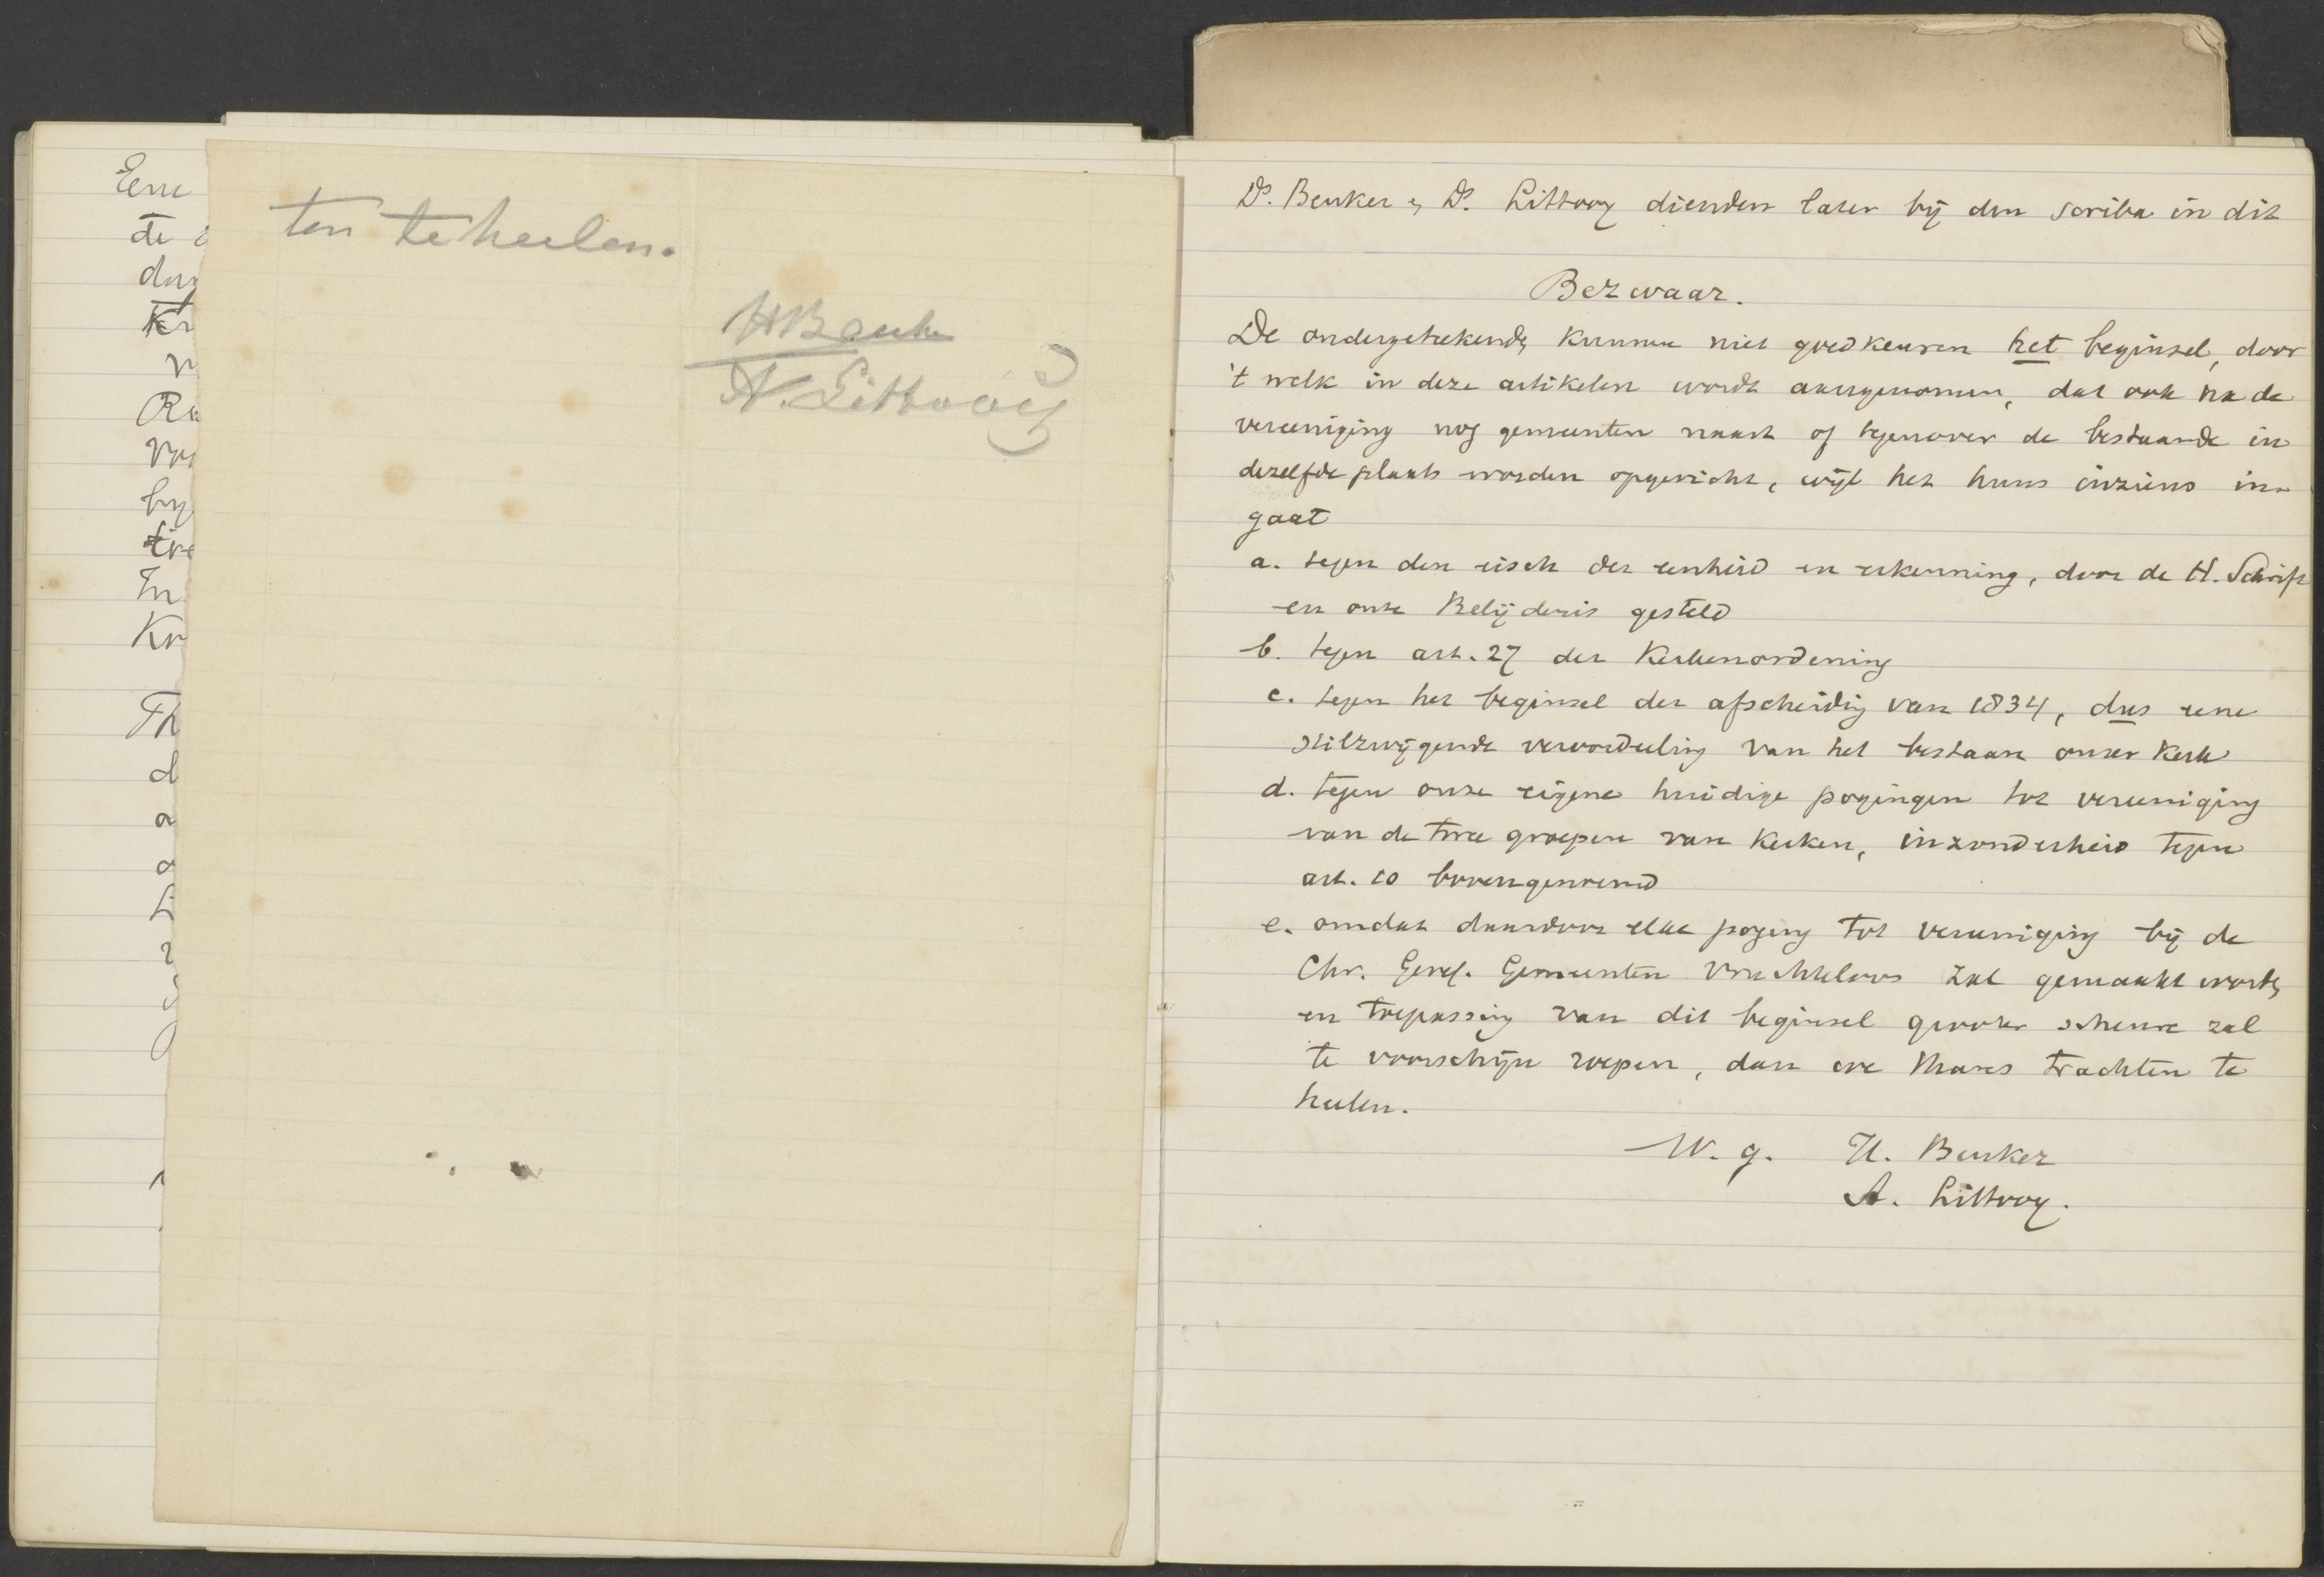 Eene
de
Kr
Th
ten te heelen.
HBeuker
A. Littooij
Ds. Beuker & Ds. Littooy dienden later bij den scriba in dit
Bezwaar.
De ondergeteekenden kunnen niet goedkeuren het beginsel, door
't welk in deze artikelen wordt aangenomen, dat ook na de
vereeniging nog gemeenten naast of tegenover de bestaande in
dezelfde plaats worden opgericht, wijl het huns inziens in-
gaat
a. tegen den eisch der eenheid en erkenning, door de H. Schrift
en onze Belijdenis gesteld
b. tegen art. 27 der Kerkenordening
c. tegen het beginsel der afscheidig van 1834, dus eene
stilzwijgende veroordeeling van het bestaan onzer Kerk
d. tegen onze eigene huidige pogingen tot vereeniging
van de twee groepen van Kerken, inzonderheid tegen
art. 10 bovengenoemd
e. omdat daardoor elke poging tot vereeniging bij de
Chr. Geref. Gemeenten vruchteloos zal gemaakt worden,
en toepassing van dit beginsel grooter scheure zal
te voorschijn roepen, dan we thans trachten te
heelen.
W. g. H. Beuker
A. Littooy.